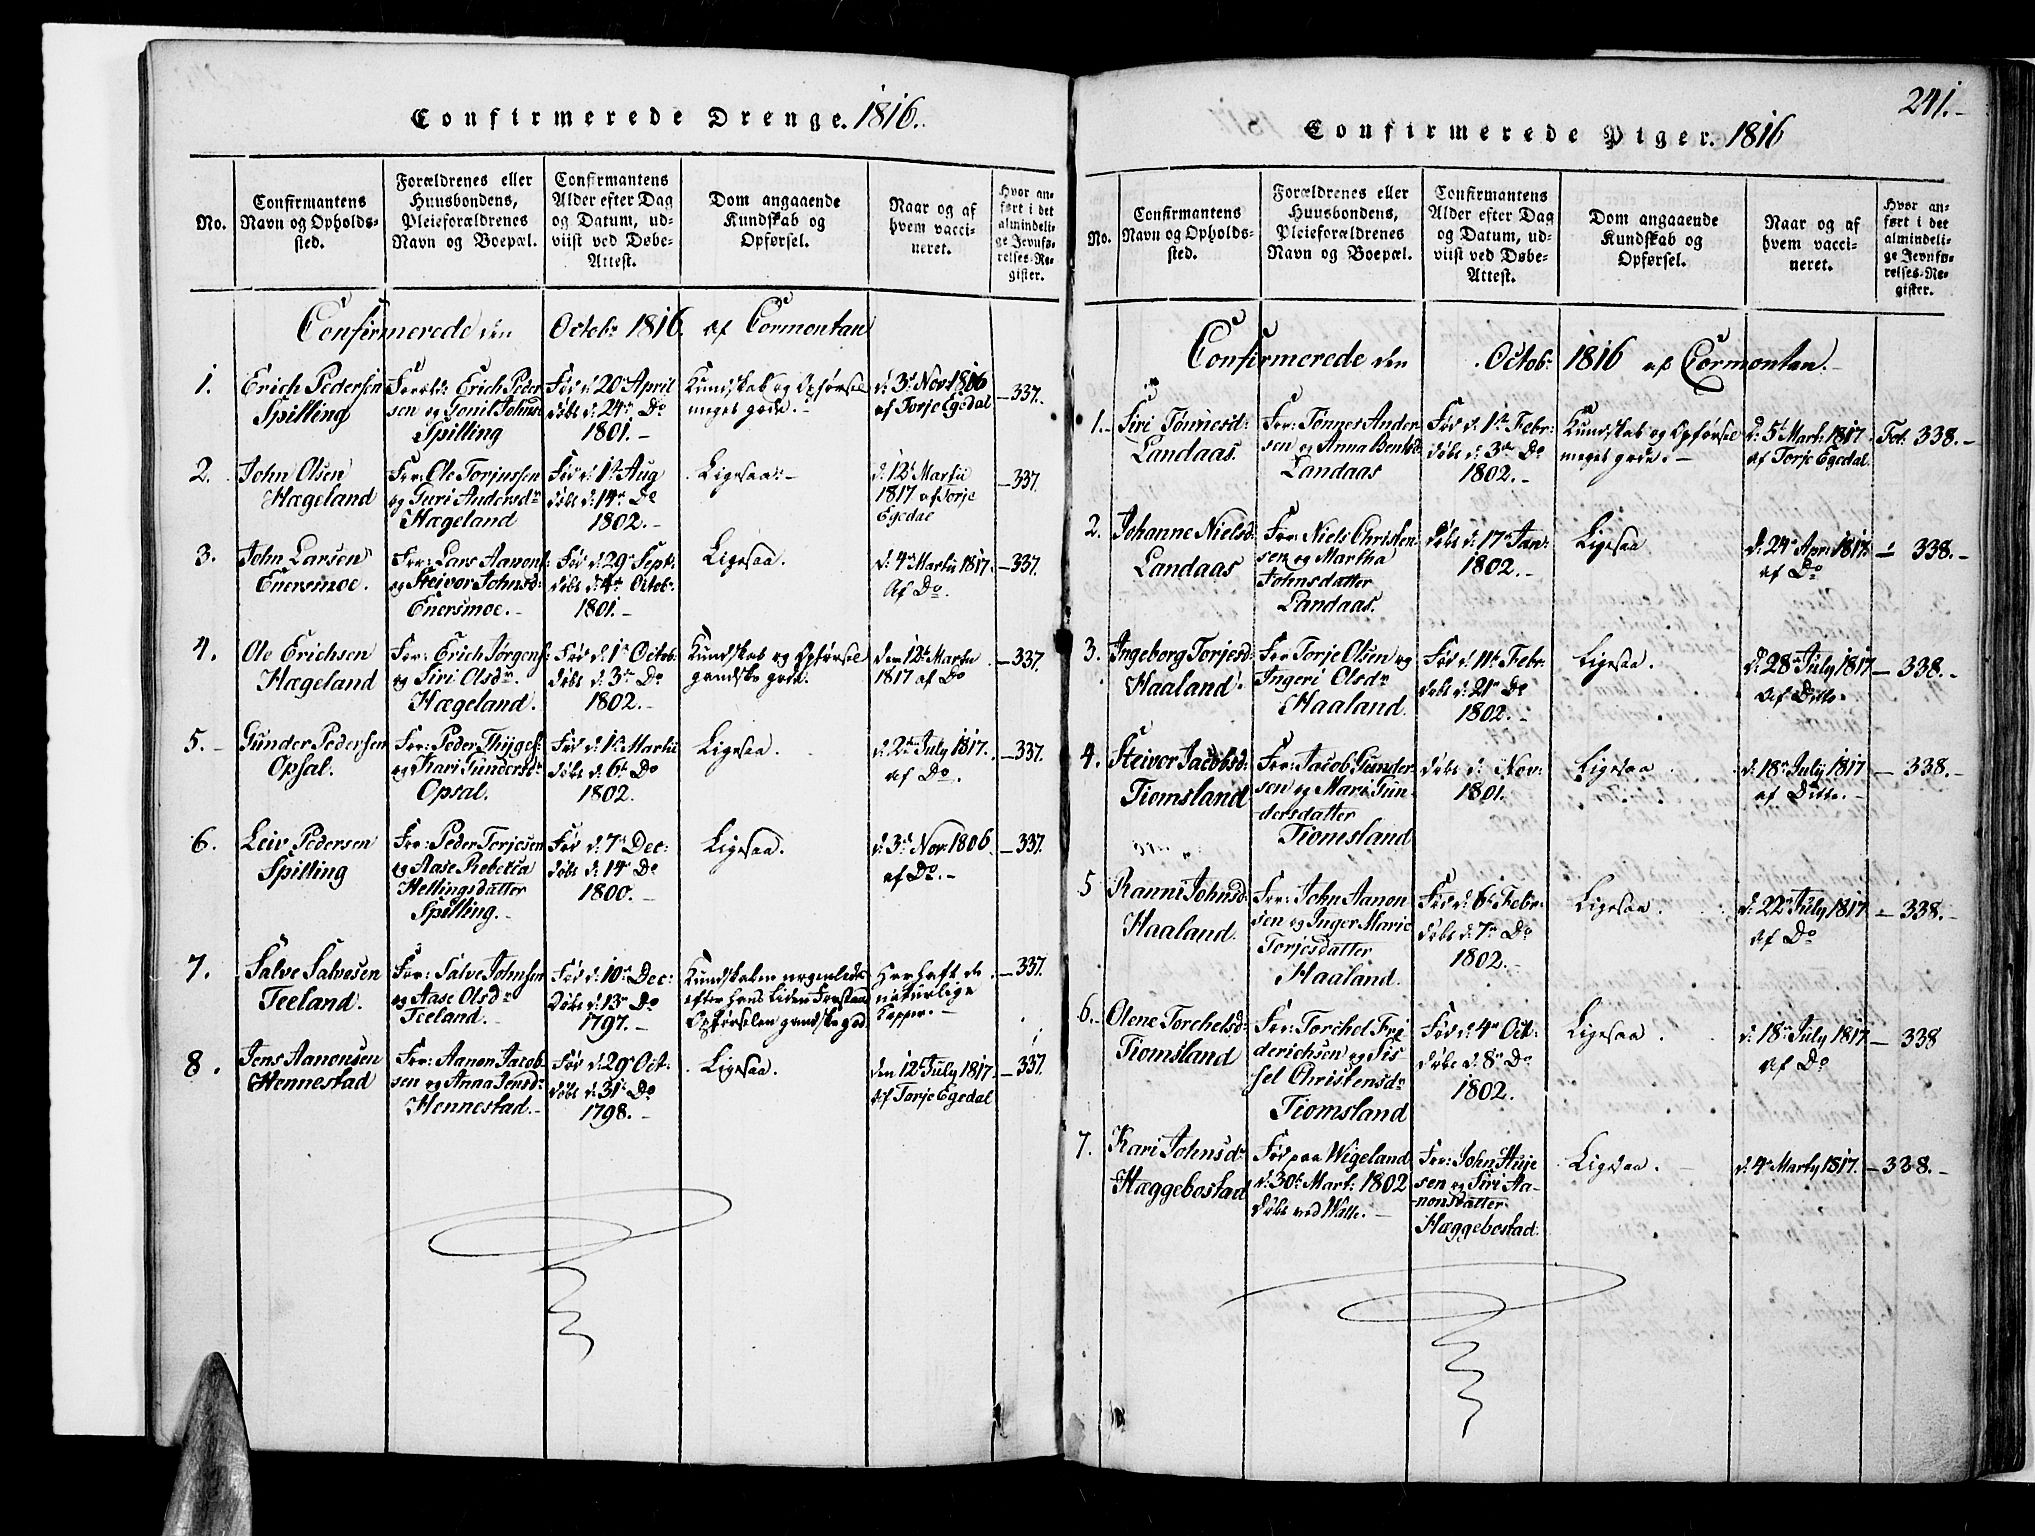 Confirmerede Drenge. 1816.
No.
Confirmantens
Navn og Opholds-
sted.
Forældrenes eller
Huusbondens,
Pleieforældrenes
Navn og Boepæl.
Confirmantens
Alder efter Dag
og Datum, ud-
viist ved Døbe-
Attest.
Dom angaaende
Kundskab og
Opførsel.
Naar og af
hvem vacci-
neret.
Hvor an-
ført i det
almindeli-
ge Jevnfø-
relses-Re-
gister.
Confirmerede den Octobr 1816. af Cormontan
1. Erich Pedersen
Spilling
Erich Peder
sen og Gonil Johns
Spilling
Fød d: 20 April
døbt d: 24 Do
1801.-
Kundskab og Opførsel
meget gode.-
d: 3d Nov: 1806
af Torje Egedal
-337.
2. John Olsen
Hægeland
For: Ole Torjussen
og Guri Andersdr
Hægeland
Fød d: 1te Aug
døbt d: 14de Do
1802.-
Ligesaa.-
d: 12te Martii
1817 af Torje
Egedal
-337.
3. John Larsen
Enersmoe.
For: Lars Aanons
og Steivor Johnsd:
Enersmoe.-
Fød d: 29 Sept:
døbt d: 4de Octob:
1801.-
Ligesaa.
d: 4de Martii 1817.
Af Do.
-337.
4. Ole Erichsen
Hægeland
For: Erich Jørgens
og Siri Olsdr.
Hægeland.
Fød d: 1te Octob:
døbt d: 3de Do
1802.-
Kundskab og Opførsel
gandske gode.
den 12te Martii
1817 af Do
-337.
5.- Gunder Pedersen
Opsal.
For: Peder Thyges:
og Kari Gundersdr
Opsal.
Fød d: 1te Martii
døbt d: 6te Do
1802.
Ligesaa.
d: 2de July 1817.
af Do.
-337.
6. Leiv Pedersen
Spilling
For: Peder Terjesen
og Aase Rebecca
Hellingsdatter
Spilling.-
Fød d: 7de Dec:
døbt d: 14de Do
1800.-
Ligesaa.
d: 3de Nov: 1806
af Do.-
-337.
7. Salve Salvesen
Teeland.
For: Salve Johnsen
og Aase Olsdr
Teeland.-
Fød d: 10de Dec:
Døbt d: 13de Do
1797.-
Kundskaben nogenledes
efter hans liden Forstand
Opførselen gandske god
Har haft de
naturlige
Kopper.-
-337.
8. Jens Aanonsen
Hennestad
For: Aanon Jacob
sen og Anna Jensdr:
Hennestad.-
Fød d: 29de Oct:
døbt d: 31te Do
1798.-
Ligesaa.
den 12te July 1817.
Af Torje Egedal
-337.
241.-
Confirmerede Piger. 1816
No.
Confirmantens
Navn og Opholds-
sted.
Forældrenes eller
Huusbondens,
Pleieforældrenes
Navn og Boepæl.
Confirmantens
Alder efter Dag
og Datum, ud-
viist ved Døbe-
Attest.
Dom angaaende
Kundskab og
Opførsel.
Naar og af
hvem vacci-
neret.
Hvor an-
ført i det
almindeli-
ge Jevnfø-
relses-Re-
gister.
Confirmerede den Octob: 1816 af Cormontan.-
1.- Siri Tönnesd:
Landaas
For: Tönnes Ander
sen og Anna Bentsd:
Landaas
Fød d: 1te Febr:
døbt d: 3de Do
1802.-
Kundskab og Opførsel
meget gode.-
d: 5te Mart: 1817.
af Torje Egedal
Fol: 338.-
2. Johanne Nielsd:
Landaas
For: Niels Christen
sen og Martha
Johnsdatter
Landaas.
døbt d: 17de Jan:
1802.-
Ligesaa
d: 24de Apr: 1817.
af Do
- 338.-
3. Ingeborg Torjesd:
Haaland.
For: Torje Olsen og
Ingeri Olsdr
Haaland.
Fød d: 11te Febr:
døbt d: 21de Do
1802.-
Ligesaa.
d: 28de July 1817
Af Ditto.
- 338.-
4. Steivor Jacobsd:
Tiomsland
For: Jacob Gunder
sen og Mari Gun-
dersdatter
Tiomsland
døbt d: Nov:
1801.
Ligesaa
d: 18de July 1817
af Ditto.-
- 338.-
5 Ranni Johnsd:
Haaland.
For: John Aanon
sen og Inger Marie
Torjesdatter
Haaland.
Fød d: 6te Febr:
døbt d: 7de Do
1802.-
Ligesaa.
d: 22de July 1817.
Af Do
- 338.-
6.- Olene Torchelsd:
Tiomsland
For: Torchel Fri
derichsen og Sis-
sel Christensdr
Tiomsland
Fød d: 4de Oct:
døbt d: 8de Do
1802.
Ligesaa
d: 18de July 1817
af Do
- 338
7. Kari Johnsdr
Hæggebostad
Fød paa Wigeland
d: 30te Mart: 1802
døbt ved Walle.-
For: John Huje
sen og Siri Aa-
nonsdatter
Hæggebostad
Ligesaa.
d: 4de Marty 1817.
-338.-